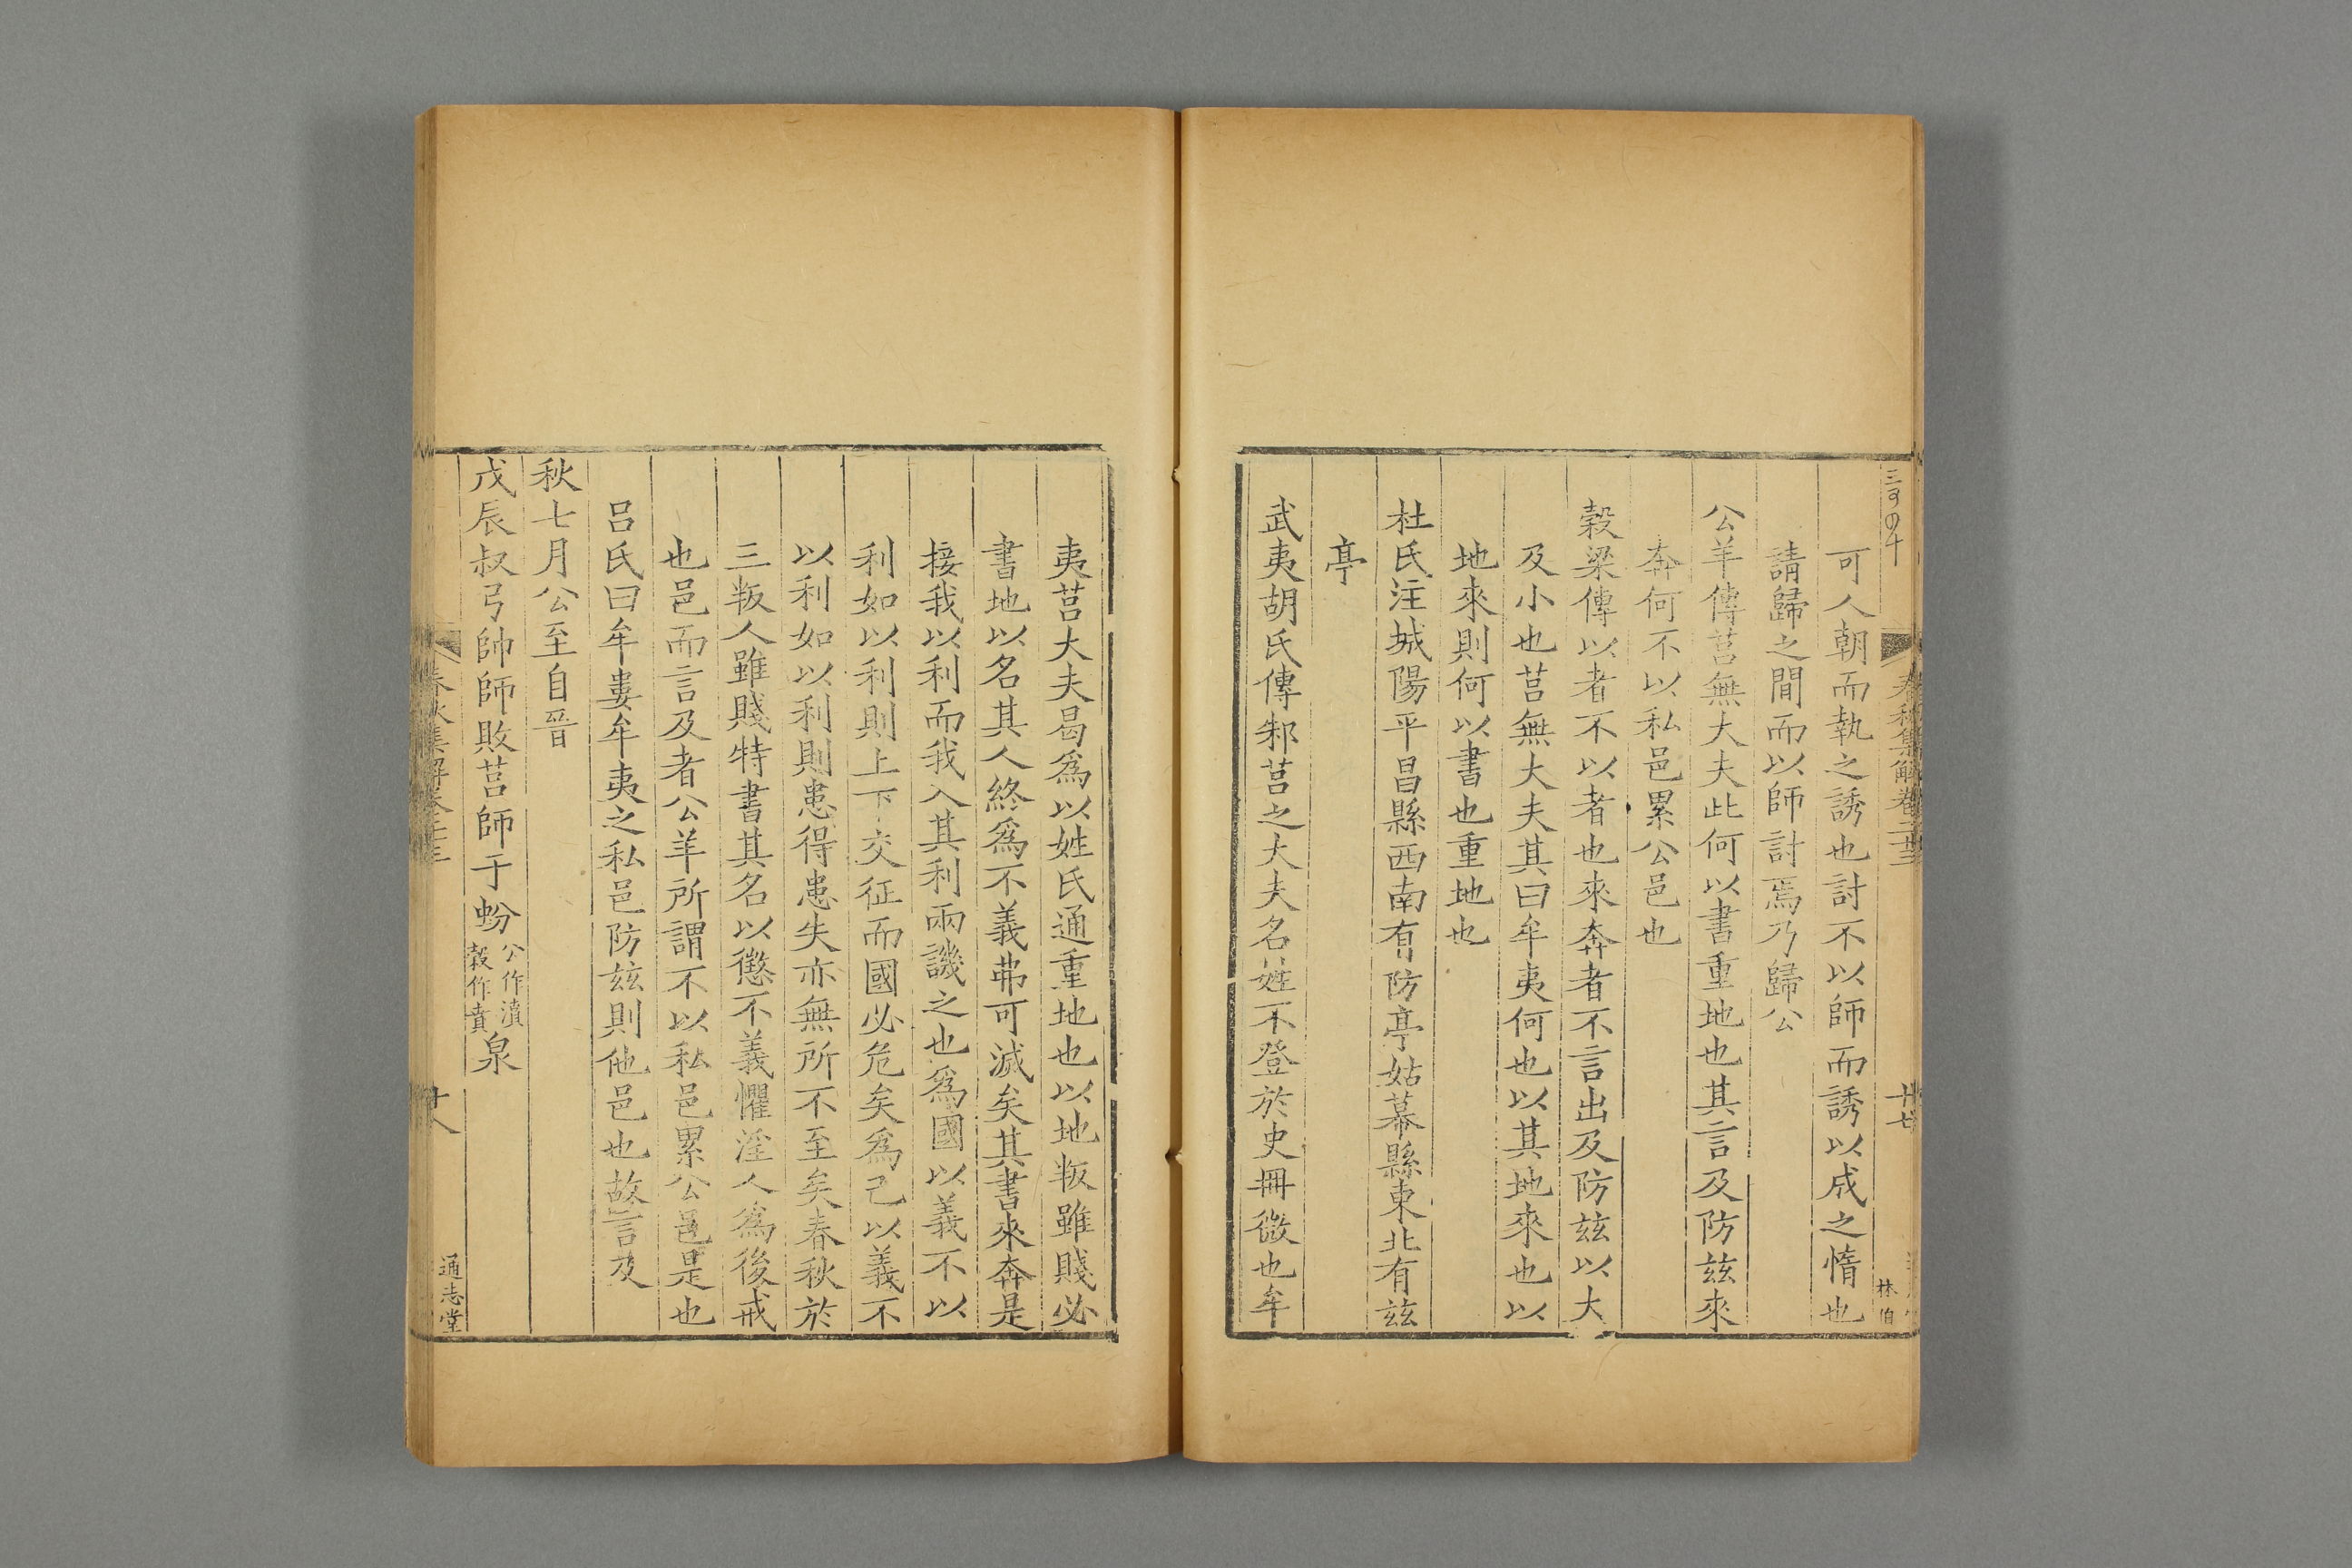 可人朝而執之誘也討不以師而誘以成之惰也
請歸之間而以師討焉乃歸公
公羊傳莒無大夫此何以書重地也其言及防茲來
奔何不以私邑累公邑也
穀梁傳以者不以者也來奔者不言出及防茲以大
及小也莒無大夫其曰牟夷何也以其地來也以
地來則何以書也重地也
杜氏注城陽平昌縣西南有防亭姑幕縣東北有茲
亭
武夷胡氏傳邾莒之大夫名姓不登於史冊微也牟
夷莒大夫曷為以姓氏通重地也以地叛雖賤必
書地以名其人終為不義弗可滅矣其書來奔是
接我以利而我入其利兩譏之也為國以義不以
利如以利則上下交征而國必危矣為己以義不
以利如以利則患得患失亦無所不至矣春秋於
三叛人雖賤特書其名以懲不義懼淫人為後戒
也邑而言及者公羊所謂不以私邑累公邑是也
呂氏曰牟婁牟夷之私邑防茲則他邑也故言及
秋七月公至自晉
戊辰叔弓帥師敗莒師于蚡公作濆穀作賁泉
春秋集解卷二十三
十八
通志堂